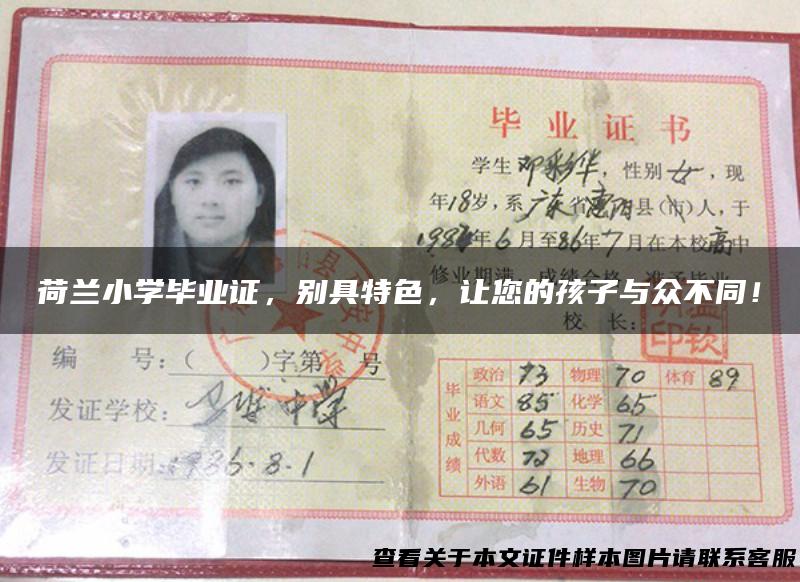 毕业证书
学生邓彩华，性别女，现
年18岁，系广东省惠阳县(市)人，于
年6月至86年7月在本校高中
修业期满，成绩合格，准予毕业
荷兰小学毕业证，别具特色，让您的孩子与众不同！
校 长：
编 号：( )字第 号
发证学校：
中学
发证日期：1986.8.1
毕业成绩
政治 73 物理 70 体育 89
语文 85 化学 65
几何 65 历史 71
代数 72 地理 66
外语 61 生物 70
查看关于本文证件样本图片请联系客服